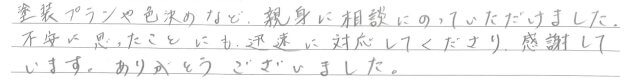 塗装プランや色決めなど、親身に相談にのっていただけました。
不安に思ったことにも迅速に対応してくださり、感謝して
います。ありがとうございました。